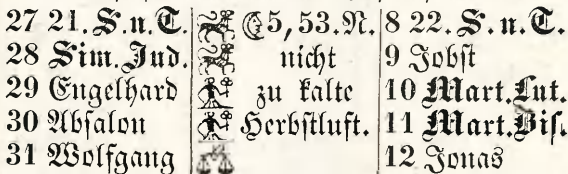 27 21. S. n. T. ☾5, 53. N. 8 22. S. n. T.
28 Sim. Jud. nicht 9 Jobst
29 Engelhard zu kalte 10 Mart. Lut.
30 Absalon Herbstluft. 11 Mart. Bis.
31 Wolfgang 12 Jonas